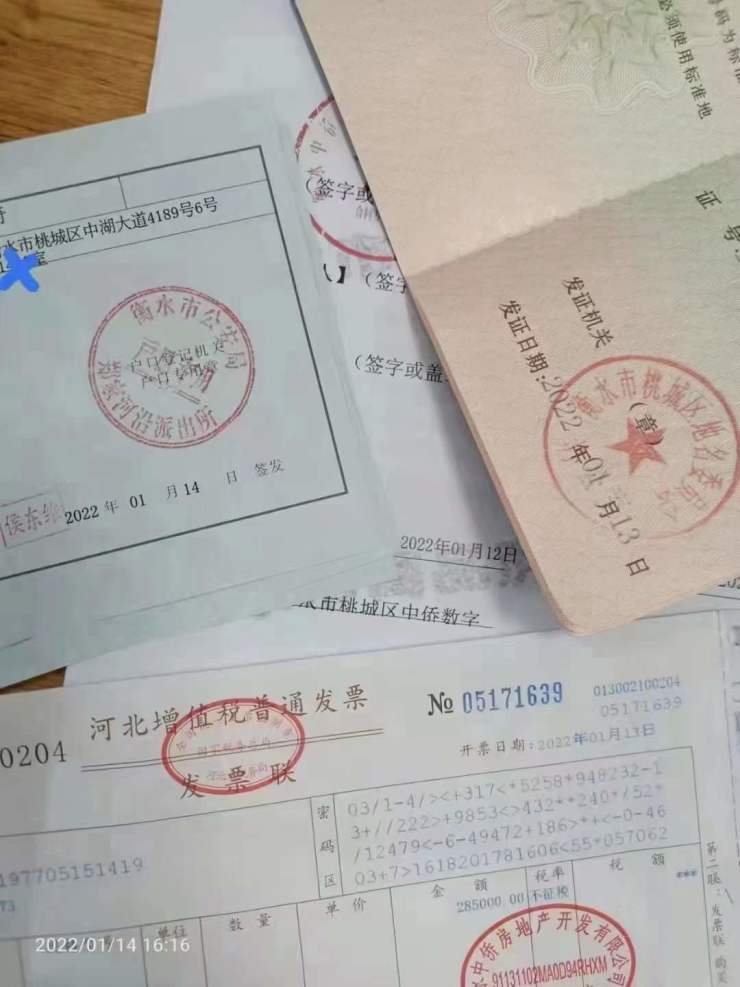 水市桃城区中湖大道4189号6号
室
衡水市公安局
户口登记机关
户口专用章
郑家河沿派出所
2022 年 01 月 14 日 签发
(签字或
】 (签字
(签字或盖
2022年01月12日
水市桃城区中侨数字
号码为标准
必须使用标准地
证 号
发证机关
(章)
水市桃城区地名委员会
发证日期:2022 年 01 月 13 日
0204
河北增值税普通发票
发 票 联
№ 05171639
013002100204
05171639
开票日期:2022年01月13日
密码区
03/1-4/><+317<*5258*948232-1
3+//222>+9853<>432**240*/52*
/12479<-6-49472+186>*+<-0-46
03+7>1618201781606<55*057062
197705151419
73
单位
数 量
单 价
金 额
税率
税 额
285000.00
不征税
***
第二联:发票联
中侨房地产开发有限公司
91131102MA0D94RHXM
2022/01/14 16:16